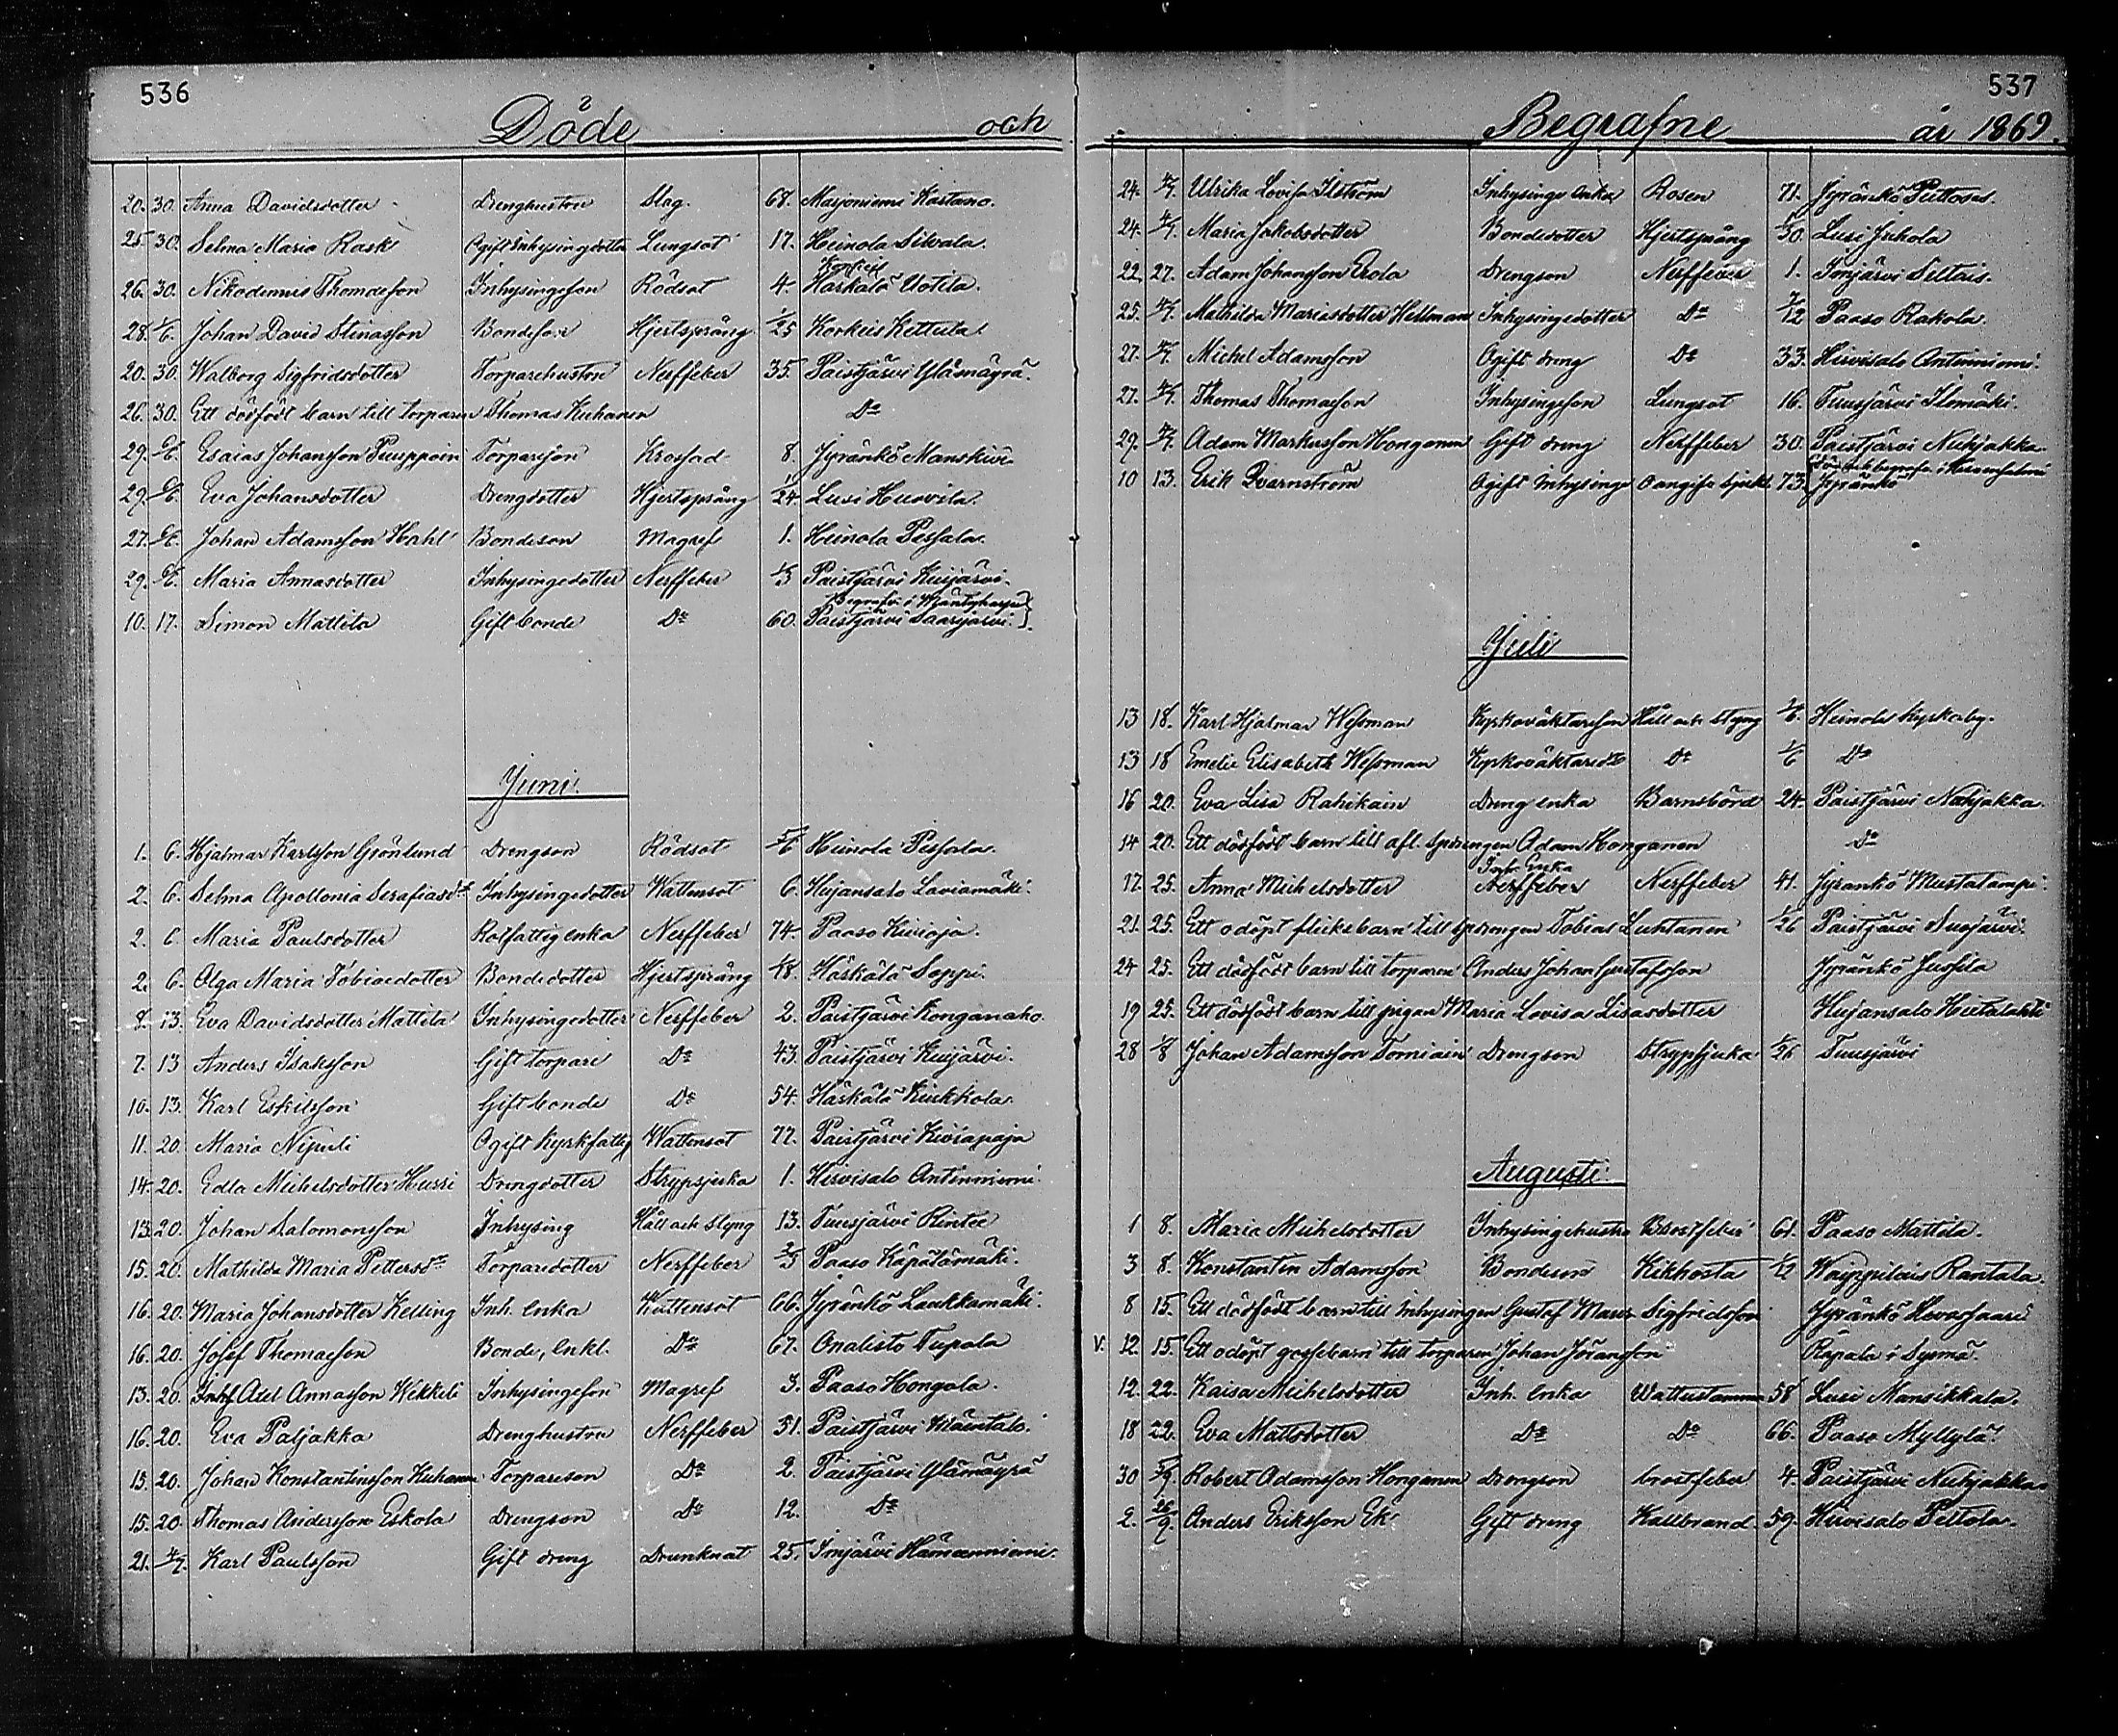 536
Döde och
20. 30. Anna Davidsdotter Drenghustru Slag. 68. Marjoniemi Kastano.
25 30. Selma Maria Rask Ogift Inhysingdotter Lungsot 17. Heinola Silvala.
26. 30. Nikodemus Thomasson Inhysingeson Rödsot 4. Härkälä Uotila.
28. 1/6. Johan David Stinasson Bondeson Hjertsprång 1/25 Korkeis Kettula
20. 30. Walborg Sigfridsdotter Torparehustru Nerffeber 35. Paistjärvi Ylämäyrä.
26. 30. Ett dödfödt barn till torparen Thomas Kuhanen Do
29. 6/6. Esaias Johansson Puuppoin Torpareson Krossad 8. Jyränkö Manskivi
29. 6/6. Eva Johansdotter Drengdotter Hjertsprång 1/24 Lusi Huovila.
27. 6/6. Johan Adamsson Hahl Bondeson Magref 1. Heinola Pessala.
29. 6/6. Maria Annasdotter Inhysingedotter Nerffeber 1/3 Paistjärvi Kuijärvi.
Begrafn i Mäntyharju
10. 17. Simon Mattila Gift bonde Do 60. Paistjärvi Saarijärvi.
Juni.
1. 6. Hjalmar Karlsson Grönlund Drengson Rödsot 5/6 Heinola Pessala.
2. 6. Selma Apollonia Serafiasdr Inhysingedotter Wattusot 6. Hujansalo Laviamäki.
2. 6. Maria Paulsdotter Rotfattig enka Nerffeber 74. Paaso Kivioja.
2. 6. Olga Maria Tobiasdotter Bondedotter Hjertsprång 1/18. Härkälä Seppi.
8. 13. Eva Davidsdotter Mattila Inhysingedotter Nerffeber 2. Paistjärvi Konganaho.
7. 13 Anders Isaksson Gift torpare Do 43. Paistjärvi Kuijärvi.
10. 13. Karl Eskilsson Gift bonde Do 54. Härkälä Kirkkola.
11. 20. Maria Nipuli Ogift kyrkfattig Wattensot 77. Paistjärvi Kiviapaja
14. 20. Edla Michelsdotter Hussi Drengdotter Strypsjuka 1. Hirvisalo Antinniemi.
13. 20. Johan Salomonsson Inhysing Håll och styng 13. Tuusjärvi Rintee
15. 20. Mathilda Maria Pettersdr Torparedotter Nerffeber 2/3 Paaso Käpälämäki.
16. 20. Maria Johansdotter Kelling Inh. enka Wattensot 66. Jyränkö Laukkamäki.
16. 20. Josef Thomasson Bonde, enkl. Do 67. Onalisto Tupala
13. 20. Axel Annasson Wekkeli Inhysingeson Magref 3. Paaso Hongola.
16. 20. Eva Paljakka Drenghustru Nerffeber 51. Paistjärvi Mäentalo.
15. 20. Johan Konstantinsson Kuhanen Torpareson Do 2. Paistjärvi Ylämäyrä
15. 20. Thomas Andersson Eskola Drengson Do 12. Do
21. 4/7. Karl Paulsson Gift dreng Drunknat 25. Imjärvi Hämeenniemi.
537
Begrafne år 1869.
24. 4/7. Ulrika Lovisa Ilström Inhysings enka Rosen 71. Jyränkö Puttoses.
24. 4/7. Maria Jakobsdotter Bondedotter Hjertsprång 1/30. Lusi Jukola
22. 27. Adam Johansson Erola Drengson Nerffeber 1. Imjärvi Siltais.
25. 4/7. Mathilda Mariasdotter Hellman Inhysingedotter Do 7/12 Paaso Rakola.
27. 4/7. Michel Adamsson Ogift dreng Do 33. Hirvisalo Antinniemi.
27. 4/7. Thomas Thomasson Inhysingeson Lungsot 16. Tuusjärvi Ilomäki.
29. 4/7. Adam Markusson Honganen Gift dreng Nerffeber 30. Paistjärvi Nuhjakka.
10 13. Erik Qvarnström Ogift inhysing Oangifn sjukd. 73. Jyränkö
Juli
13 18. Karl Hjalmar Wessman Kyrkoväktareson Håll och styng 2/6. Heinola kyrkoby.
13 18 Emelie Elisabeth Wessman Kyrkoväktaredr Do 2/6 Do
16 20. Eva Lisa Rahikain Dreng enka Barnsbörd 24. Paistjärvi Nuhjakka.
14 20. Ett dödfödt barn till afl. spdrengen Adam Honganen Do
Inh. Enka
17. 25. Anna Michelsdotter Nerffeber Nerffeber 41. Jyränkö Mustalampi.
21. 25. Ett odöpt flickebarn till spdrengen Tobias Luhtanen 1/26 Paistjärvi Suojärvi.
24 25. Ett dödfödt barn till torparen Anders Johan Gustafsson Jyränkö Jussila
19 25. Ett dödfödt barn till pigan Maria Lovisa Lisasdotter Hujansalo Hietalahti
28 1/8 Johan Adamsson Torniain Drengson Strypsjuka 1/26 Tuusjärvi
Augusti.
1 8. Maria Michelsdotter Inhysingehustru Bröstfeber 61. Paaso Mattila.
3 8. Konstantin Adamsson Bondeson Kikhosta 1/12 Waippilais Rantala.
8 15. Ett dödfödt barn till inhysingen Gustaf Maur. Sigfridsson Jyränkö Hevossaari
v. 12. 15. Ett odöpt gossebarn till torparen Johan Göransson Räpälä i Sysmä.
12. 22. Kaisa Michelsdotter Inh. enka Wattustamma 58 Lusi Mansikkala.
18 22. Eva Mattsdotter Do Do 66. Paaso Myllylä.
30 5/9. Robert Adamsson Honganen Drengson bröstfeber 4. Paistjärvi Nuhjakka.
2. 26/9. Anders Eriksson Ek Gift dreng Kallbrand. 59. Hirvisalo Peltola.